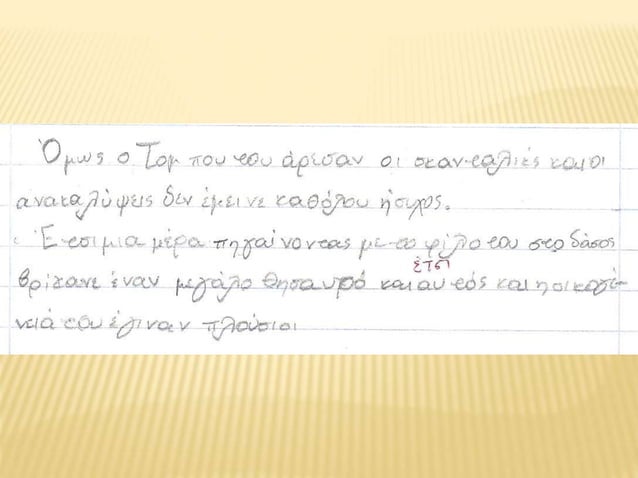 Όμως ο Τομ που του άρεσαν οι σκανταλιές και οι
ανακαλύψεις δεν έμεινε καθόλου ήσυχος.
Έτσι μια μέρα πηγαίνοντας με το φίλο του στο δάσος
έτσι
βρίκανε έναν μεγάλο θησαυρό και αυτός και η οικογέ-
νειά του έγιναν πλούσιοι